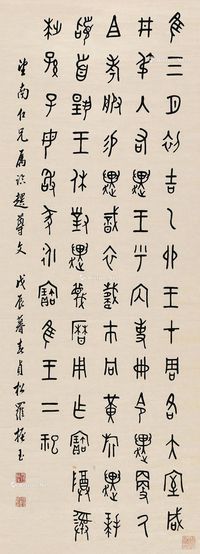 隹三月初吉乙卯王才周各大室咸
井叔入右趩王乎内史冊令趩更氒
且考服易趩戠衣載巿冋黃旂趩拜
䭫首揚王休對趩蔑曆用乍寶尊彝
枼孫子毋敢永寶隹王二祀
南仁兄屬臨趩尊文 戊辰暮春貞松羅振玉